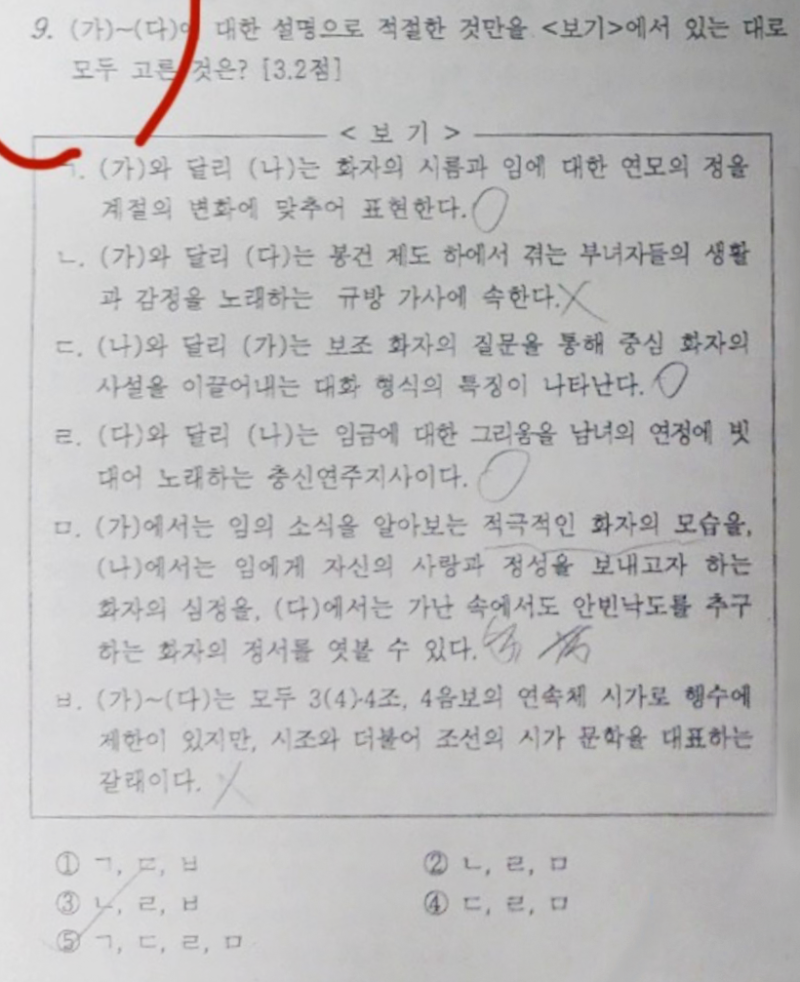 9. (가)~(다)에 대한 설명으로 적절한 것만을 <보기>에서 있는 대로
모두 고른 것은? [3.2점]
< 보 기 >
ㄱ. (가)와 달리 (나)는 화자의 시름과 임에 대한 연모의 정을
계절의 변화에 맞추어 표현한다.
ㄴ. (가)와 달리 (다)는 봉건 제도 하에서 겪는 부녀자들의 생활
과 감정을 노래하는 규방 가사에 속한다.
ㄷ. (나)와 달리 (가)는 보조 화자의 질문을 통해 중심 화자의
사설을 이끌어내는 대화 형식의 특징이 나타난다.
ㄹ. (다)와 달리 (나)는 임금에 대한 그리움을 남녀의 연정에 빗
대어 노래하는 충신연주지사이다.
ㅁ. (가)에서는 임의 소식을 알아보는 적극적인 화자의 모습을,
(나)에서는 임에게 자신의 사랑과 정성을 보내고자 하는
화자의 심정을, (다)에서는 가난 속에서도 안빈낙도를 추구
하는 화자의 정서를 엿볼 수 있다.
ㅂ. (가)~(다)는 모두 3(4)·4조, 4음보의 연속체 시가로 행수에
제한이 있지만, 시조와 더불어 조선의 시가 문학을 대표하는
갈래이다.
① ㄱ, ㄷ, ㅂ ② ㄴ, ㄹ, ㅁ
③ ㄴ, ㄹ, ㅂ ④ ㄷ, ㄹ, ㅁ
⑤ ㄱ, ㄷ, ㄹ, ㅁ